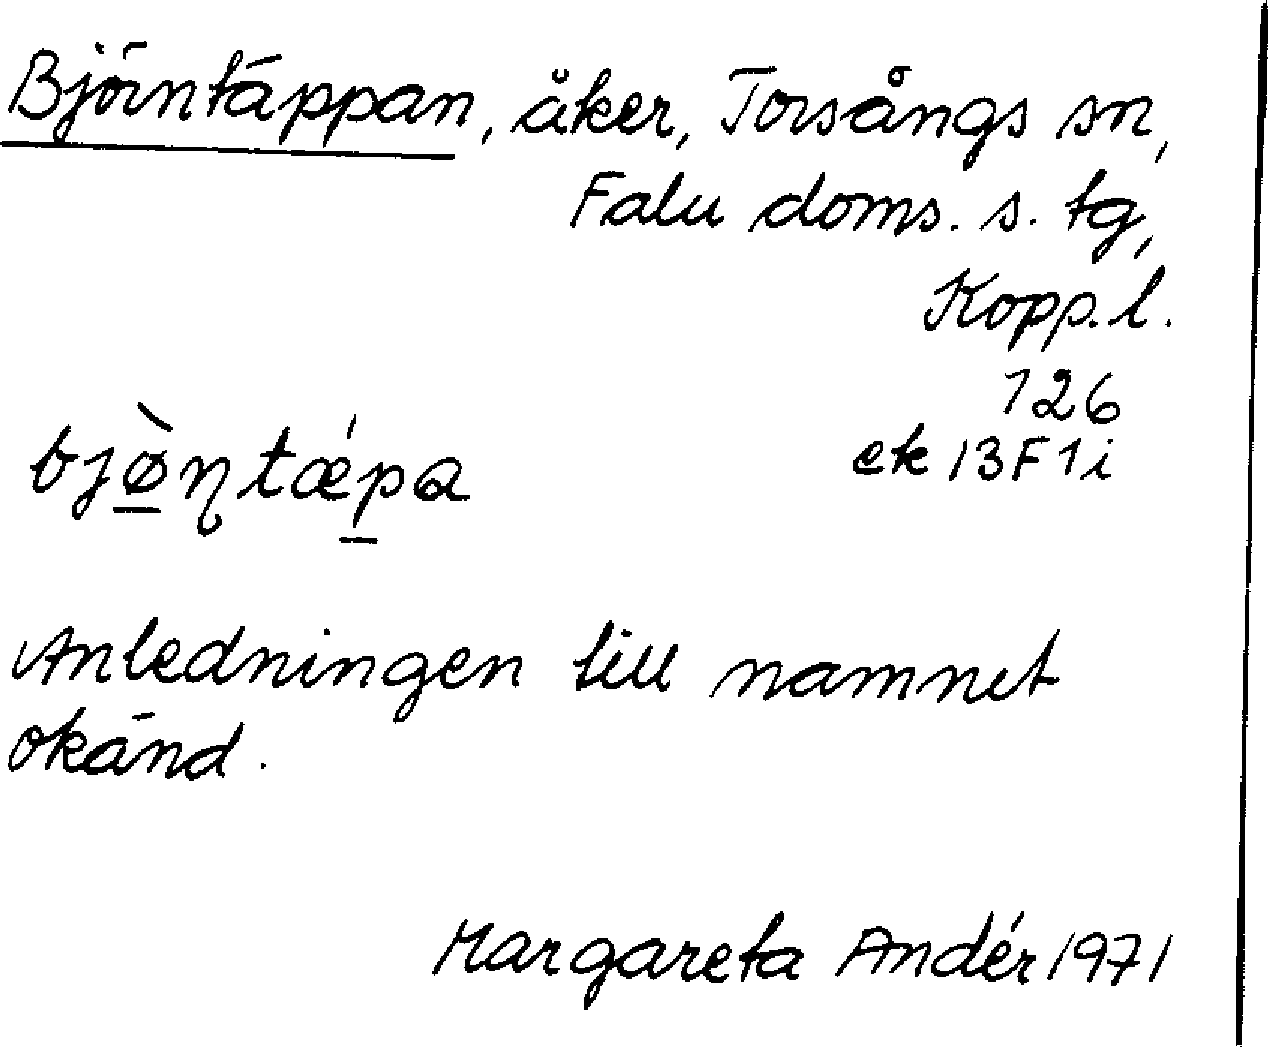 Björntäppan, åker, Torsångs sn,
Falu doms. s. tg,
Kopp. l.
126
ek 13F1i
bjø̀ɳtǽpa
Anledningen till namnet
okänd.
Margareta Andér 1971